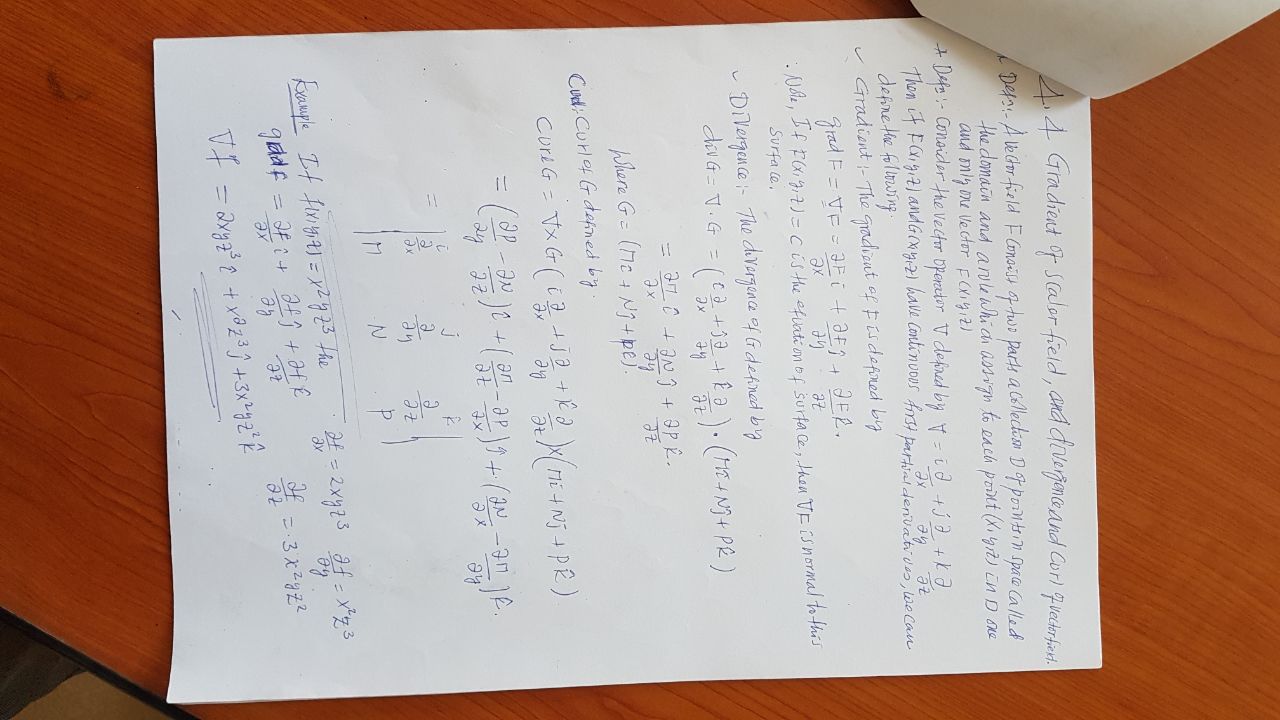 4.4 Gradient of scalar field, and divergence and Curl of vector field.
* Defn:- A vector field F consists of two parts a collection D of points in space called
the domain and a rule which assign to each point (x,y,z) in D one
and only one vector F(x,y,z)
* Defn:- Consider the vector operator ∇ defined by ∇ = i ∂/∂x + j ∂/∂y + k ∂/∂z
Then if F(x,y,z) and G(x,y,z) have continuous first partial derivatives, we can
define the following
✓ Gradient:- The gradient of F is defined by
grad F = ∇F = ∂F/∂x i + ∂F/∂y ĵ + ∂F/∂z k̂.
. Note, If F(x,y,z) = C is the equation of surface, then ∇F is normal to this
surface.
✓ Divergence:- The divergence of G defined by
div G = ∇ · G = (i ∂/∂x + ĵ ∂/∂y + k̂ ∂/∂z) · (Mî + Nĵ + Pk̂)
= ∂M/∂x î + ∂N/∂y ĵ + ∂P/∂z k̂.
Where G = (Mî + Nĵ + Pk̂).
Curl of G defined by.
Cure G = ∇ x G (i ∂/∂x + ĵ ∂/∂y + k̂ ∂/∂z) x (Mî + Nĵ + Pk̂)
= (∂P/∂y - ∂N/∂z) î + (∂M/∂z - ∂P/∂x) ĵ + (∂N/∂x - ∂M/∂y) k̂.
= | i j k̂
∂/∂x ∂/∂y ∂/∂z
M N P |
Example If f(x,y,z) = x²yz³ the ∂f/∂x = 2xyz³ ∂f/∂y = x²z³
grad f = ∂f/∂x i + ∂f/∂y ĵ + ∂f/∂z k̂ ∂f/∂z = 3x²yz²
∇f = 2xyz³ î + x²z³ ĵ + 3x²yz² k̂